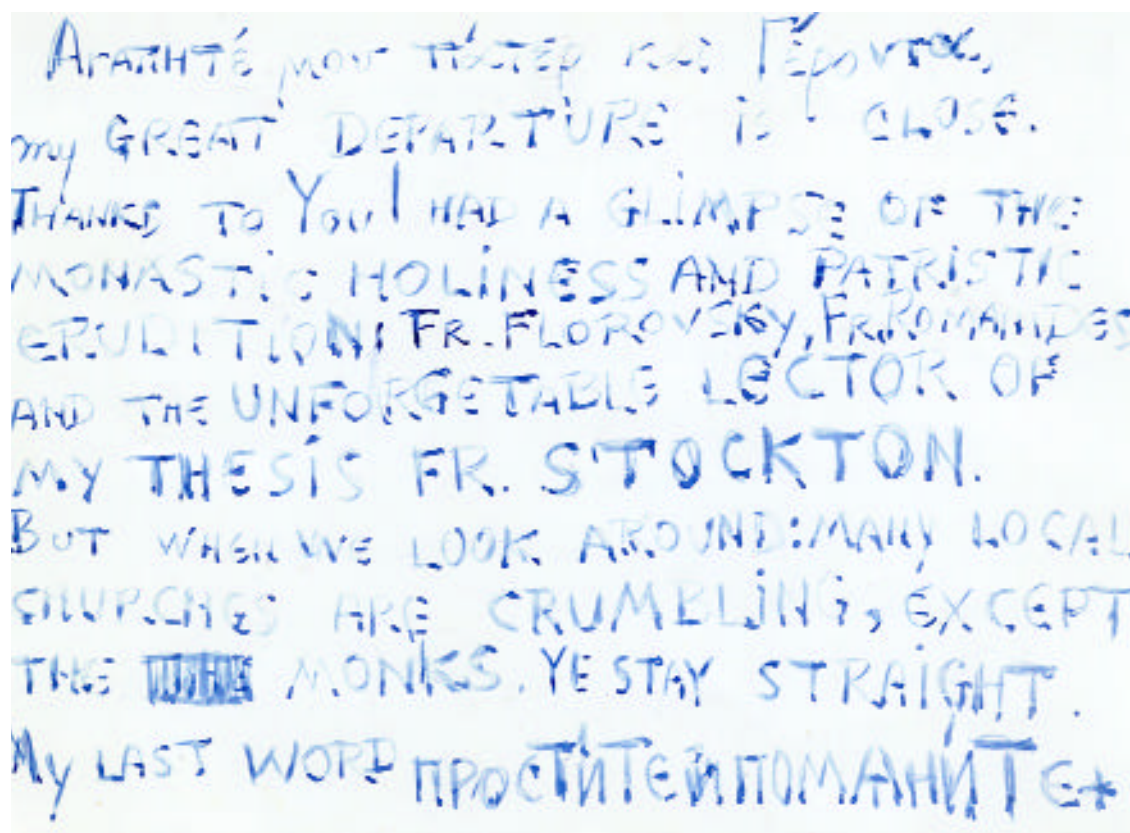 Αγαπητέ μου πάτερ και Γέροντα,
my GREAT DEPARTURE is CLOSE.
THANKS TO YOU I HAD A GLIMPSE OF THE
MONASTIC HOLINESS AND PATRISTIC
ERUDITION: FR. FLOROVSKY, FR. ROMANIDES
AND THE UNFORGETABLE LECTOR OF
MY THESIS FR. STOCKTON.
BUT WHEN WE LOOK AROUND: MANY LOCAL
CHURCHES ARE CRUMBLING, EXCEPT
THE MONKS. YE STAY STRAIGHT.
MY LAST WORD ПРОСТИТЕ И ПОМАНИТЕ+